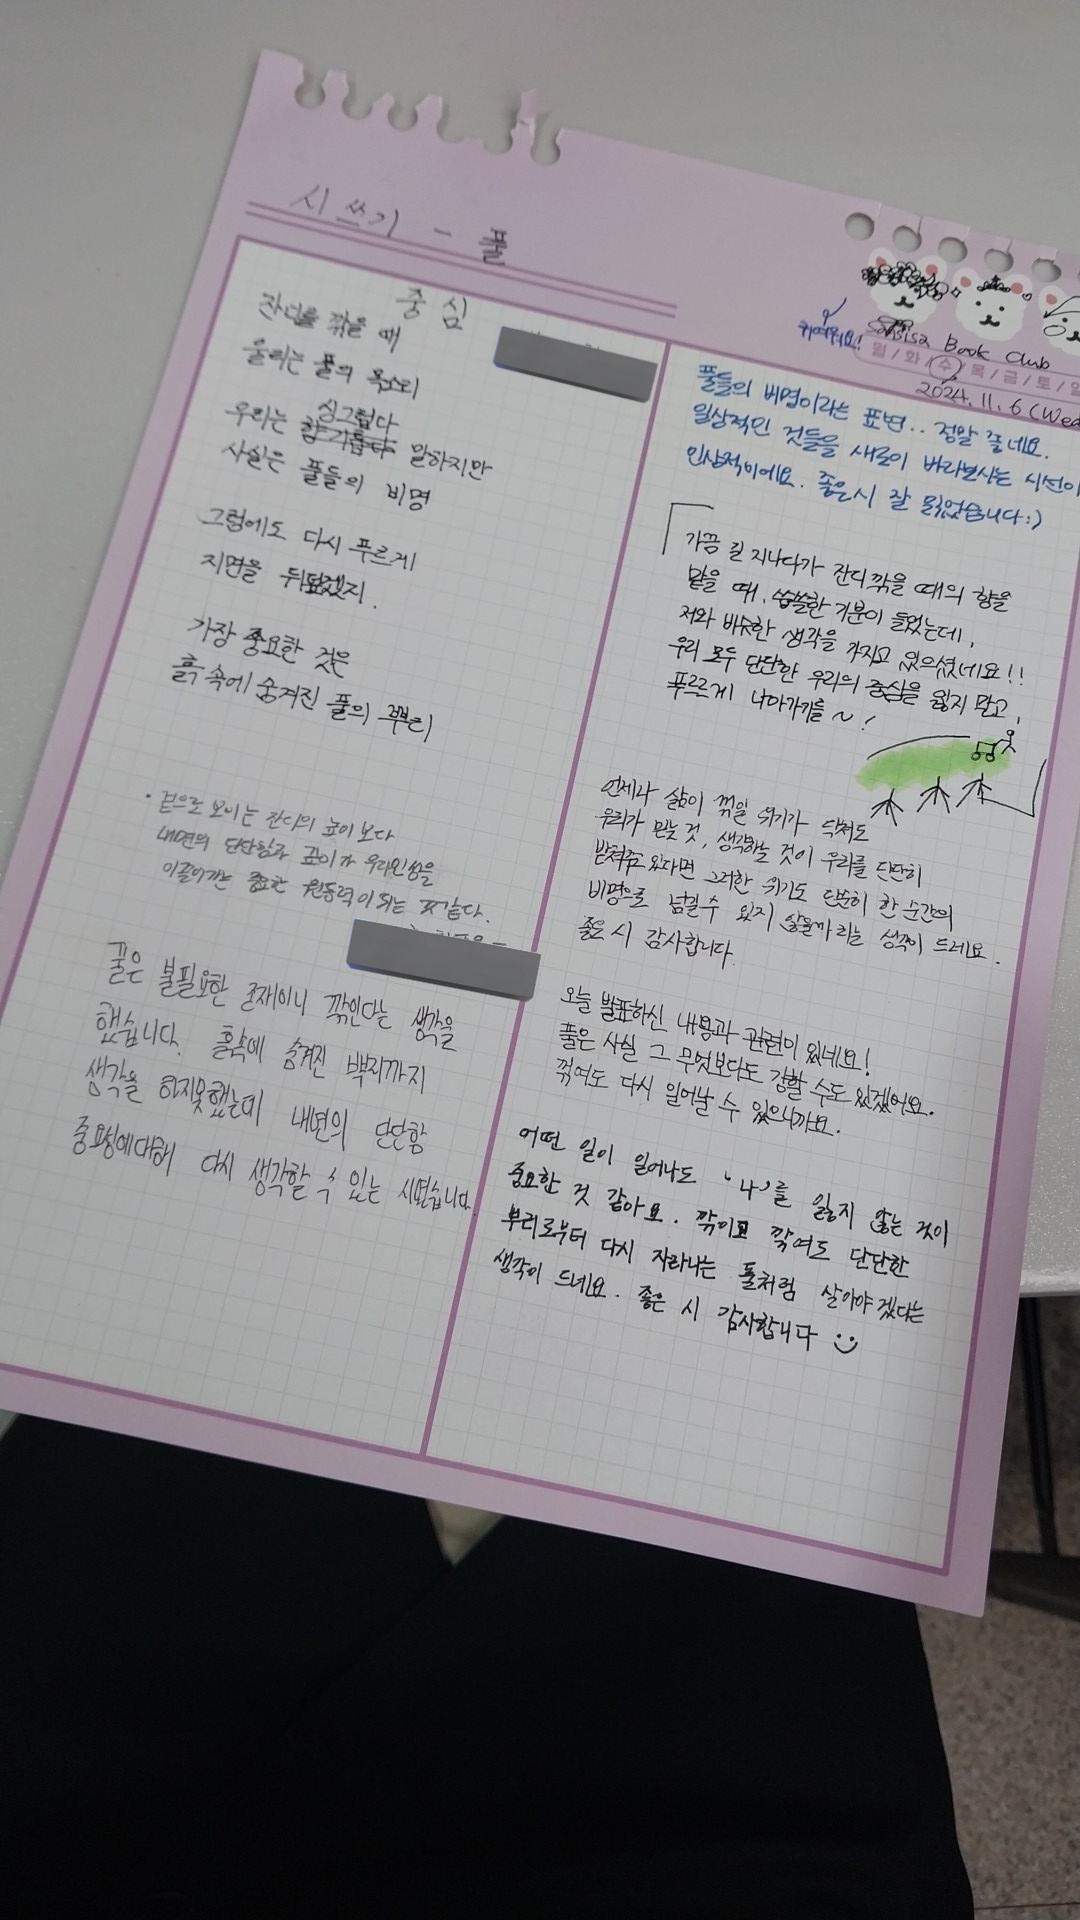 시 쓰기 - 풀
중심
잔디를 깎을 때
울리는 풀의 목소리
싱그럽다
우리는 참 기릅다 말하지만
사실은 풀들의 비명
그럼에도 다시 푸르게
지면을 뒤덮겠지.
가장 중요한 것은
흙 속에 숨겨진 풀의 뿌리
· 겉으로 보이는 잔디의 높이보다
내면의 단단함과 깊이가 우리인생을
이끌어가는 중요한 원동력이 되는 것같다.
풀은 불필요한 존재이니 깎인다는 생각을
했습니다. 흙속에 숨겨진 뿌리까지
생각을 하지못했는데 내면의 단단함
중요성에대해 다시 생각할 수 있는 시였습니다.
귀여워요!
Book Club
월/화/수/목/금/토/일
2024. 11. 6 (Wed
풀들의 비명이라는 표현.. 정말 좋네요.
일상적인 것들을 새로이 바라보시는 시선이
인상적이에요. 좋은시 잘 읽었습니다:)
가끔 길 지나다가 잔디 깎을 때의 향을
맡을 때, 씁쓸한 기분이 들었는데,
저와 비슷한 생각을 가지고 있으셨네요!!
우리 모두 단단한 우리의 중심을 잃지 말고,
푸르르게 나아가기를 ~!
언제나 삶이 꺾일 위기가 닥쳐도
우리가 믿는 것, 생각하는 것이 우리를 단단히
받쳐주고 있다면 그러한 위기도 단순히 한 순간의
비명으로 넘길 수 있지 않을까 라는 생각이 드네요.
좋은 시 감사합니다.
오늘 발표하신 내용과 관련이 있네요!
풀은 사실 그 무엇보다도 강할 수도 있겠어요.
꺾여도 다시 일어날 수 있으니까요.
어떤 일이 일어나도 '나'를 잃지 않는 것이
중요한 것 같아요. 깎이고 깎여도 단단한
뿌리로부터 다시 자라나는 풀처럼 살아야겠다는
생각이 드네요. 좋은 시 감사합니다